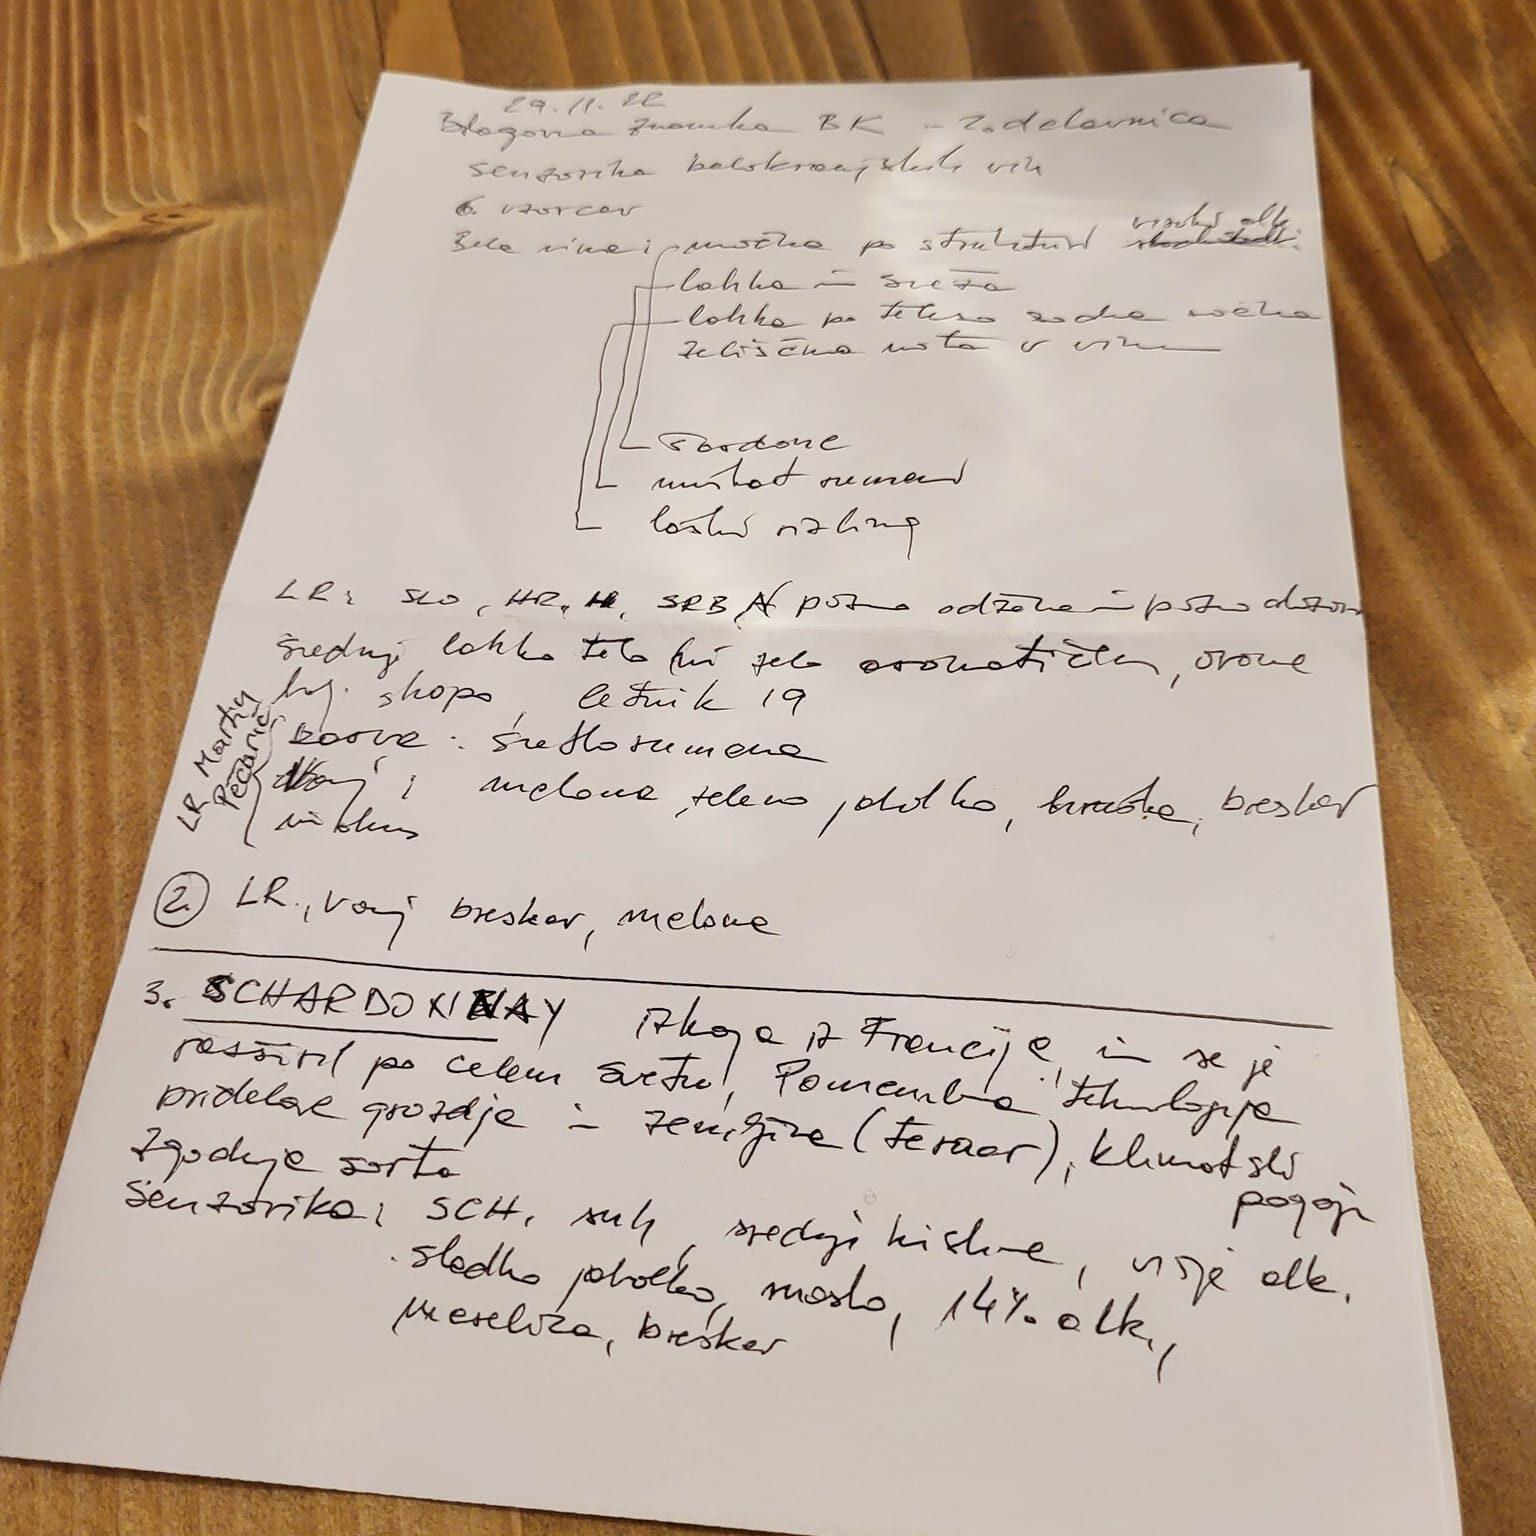 29.11.22
Blagovna znamka BK - Zodelavnica
senzorika belokranjskih vin
6 vzorcev
Bela vina: močna po strukturi visoki alk.
lahka in sveža
lahka po telesu sadna sočna
zeliščna nota v vinu
šardone
muškat rumeni
laški rizling
LR: SLO, HR, H, SRB, pozno odžene in pozno dozori
srednje lahko telo ni zelo aromatičen, arome
bolj skopo, letnik 19
LR Martin Pečarič
barva: svetlorumena
Vonj: melona, zeleno jabolko, hruška, breskev
in okus
2. LR, vonj breskev, melona
3. SCHARDONNAY izhaja iz Francije, in se je
razširil po celem svetu, Pomembna tehnologija
pridelave grozdja in zemljina (teraar), klimatski pogoji
Zgodnja sorta
Senzorika: SCH. suh, srednje kisline, višje alk.
sladko jabolko, maslo, 14% alk.,
marelica, breskev